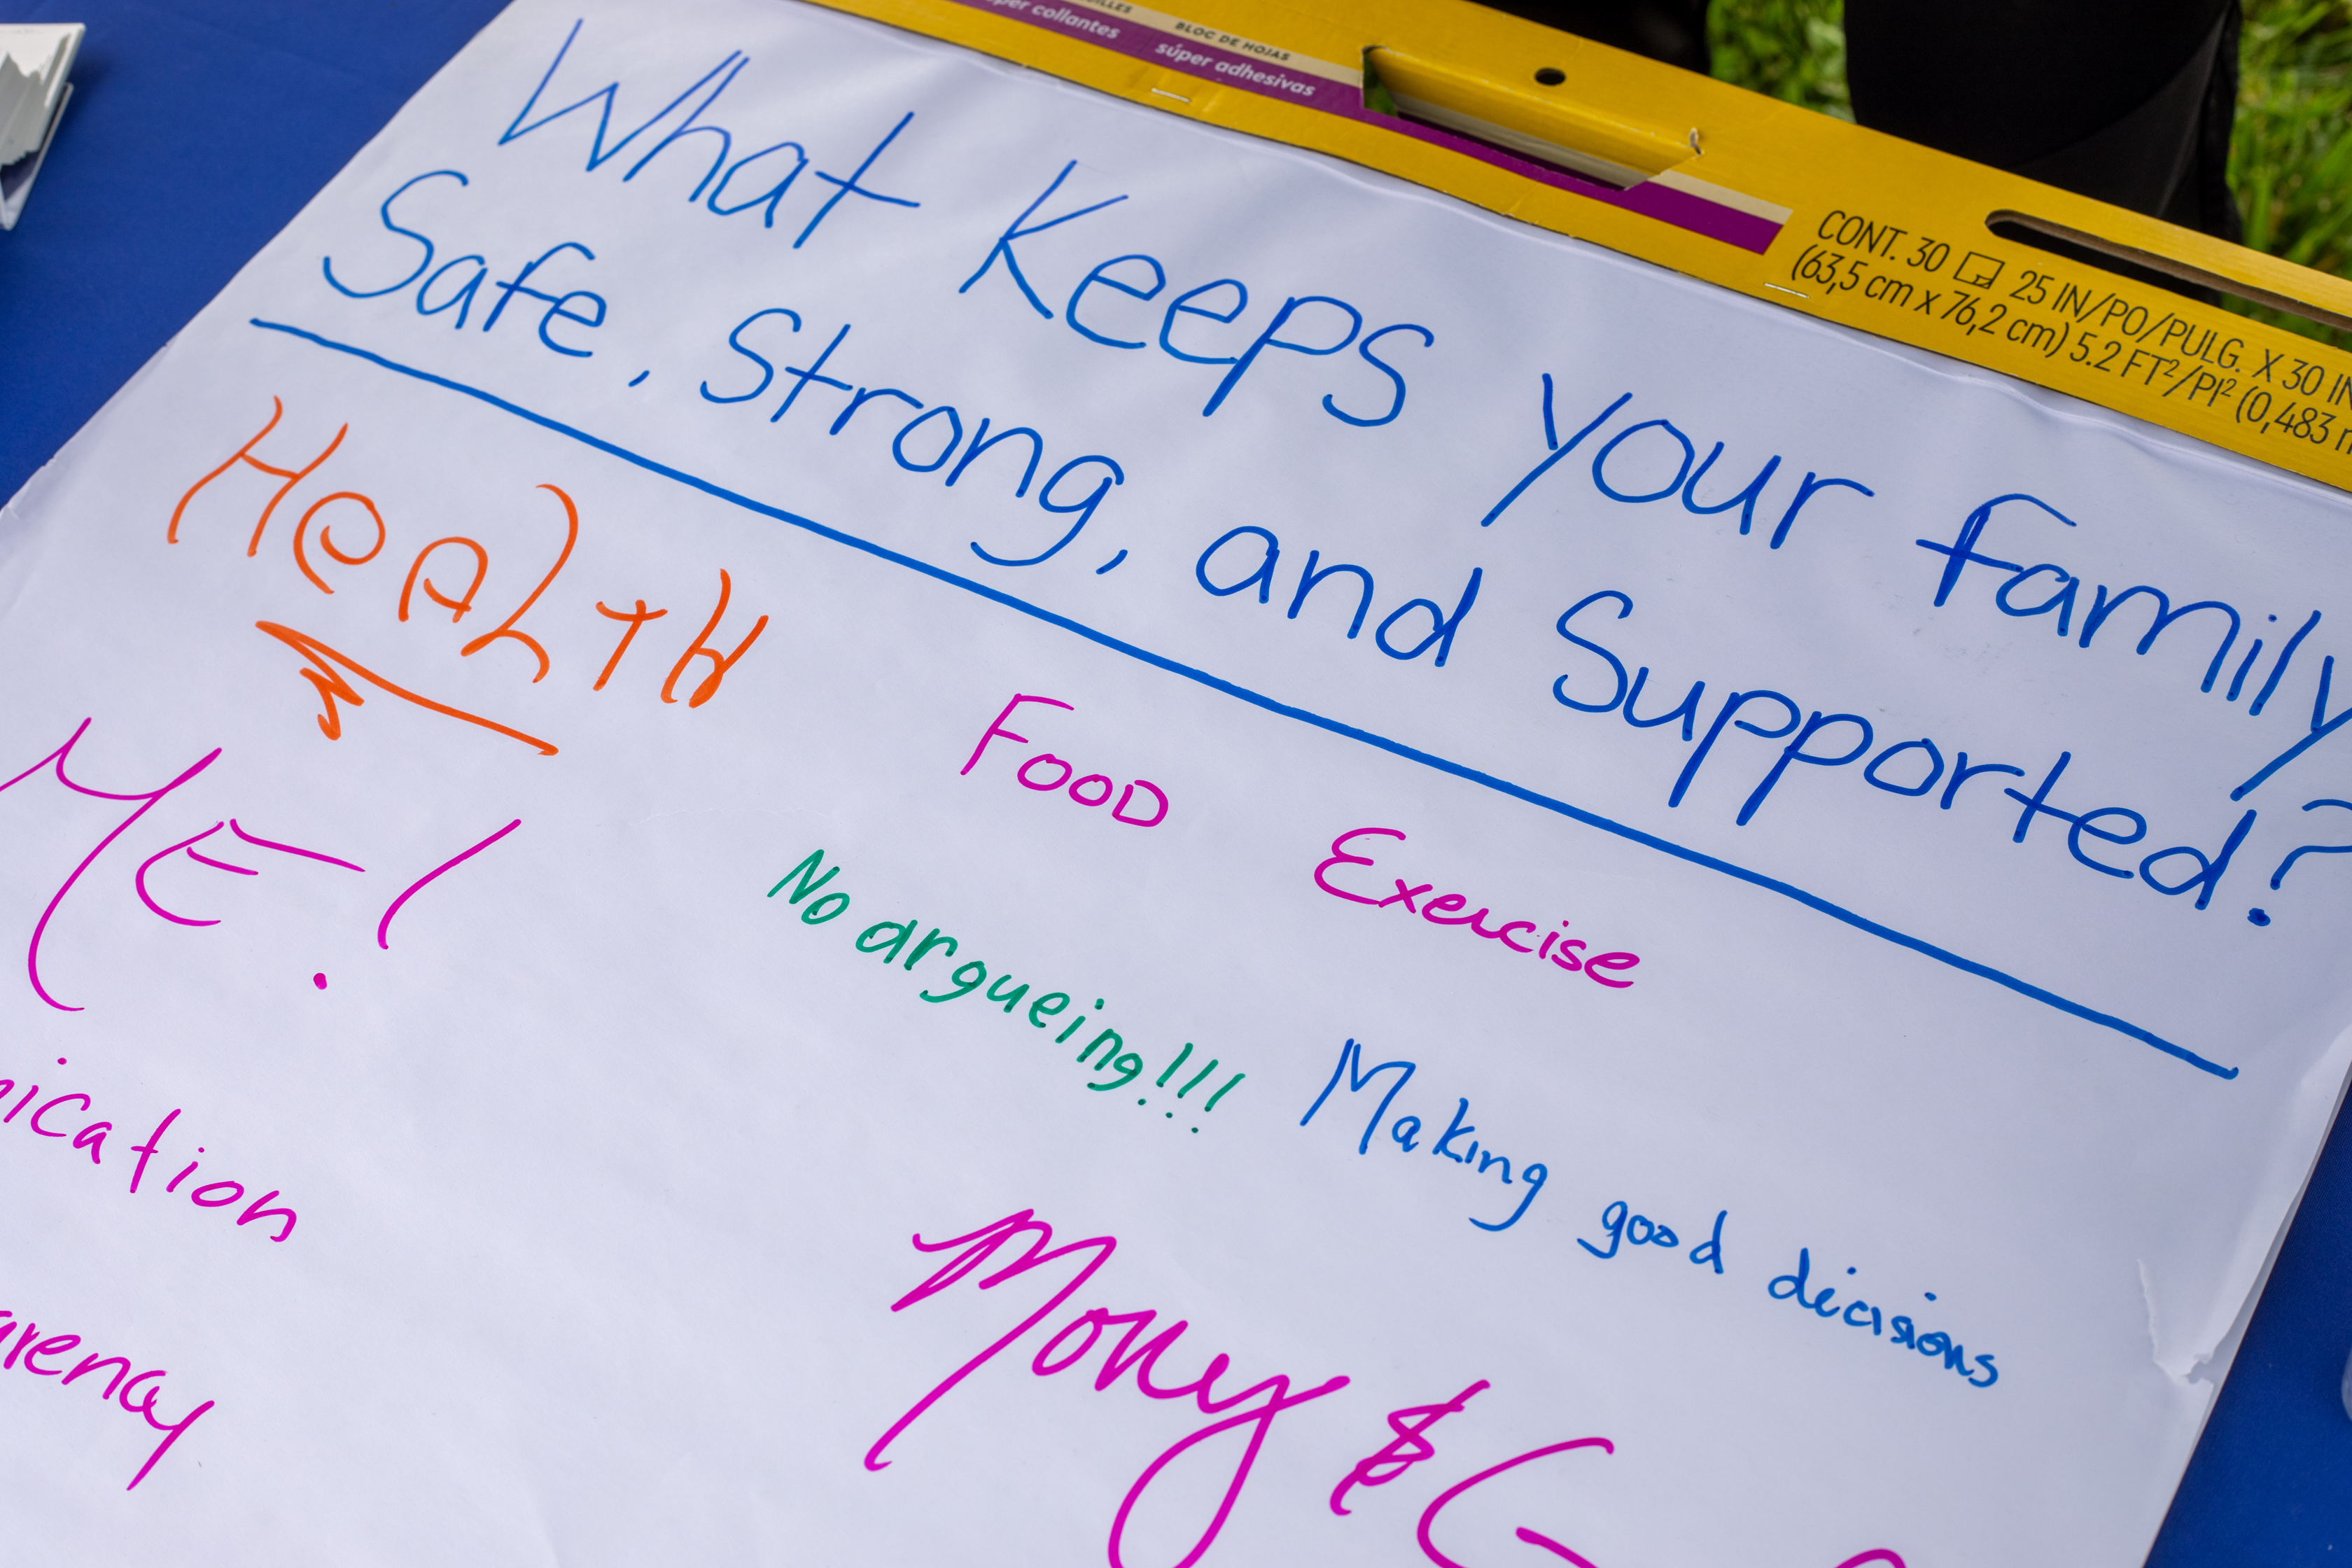 súper adhesivas
BLOC DE HOJAS
CONT. 30 25 IN/PO/PULG. X 30 IN
(63,5 cm x 76,2 cm) 5.2 FT²/PI² (0,483
What Keeps your family
Safe, Strong, and Supported?
HeALTH
FOOD
Exercise
ME!
No argueing!!!
Making good decisions
nication
Mony &